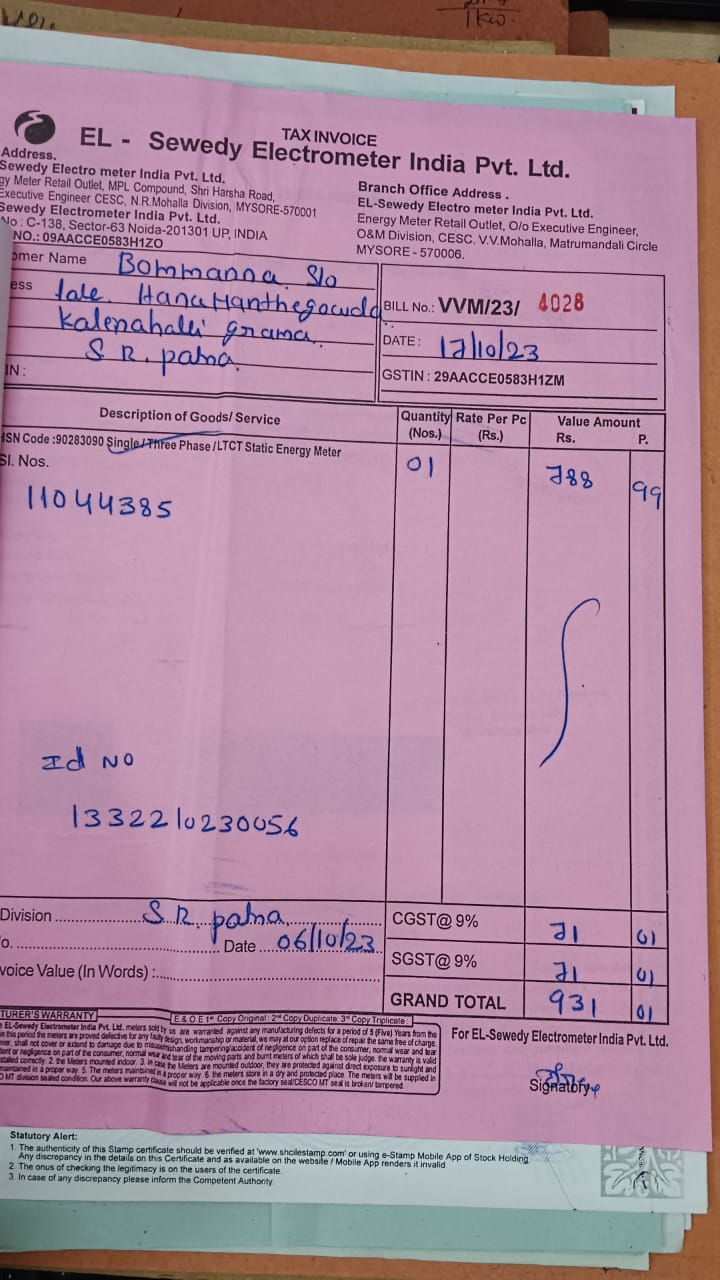 1 KW.
TAX INVOICE
EL - Sewedy Electrometer India Pvt. Ltd.
Address.
Sewedy Electro meter India Pvt. Ltd.
gy Meter Retail Outlet, MPL Compound, Shri Harsha Road,
Executive Engineer CESC, N.R.Mohalla Division, MYSORE-570001
Sewedy Electrometer India Pvt. Ltd.
No : C-138, Sector-63 Noida-201301 UP, INDIA
NO.: 09AACCE0583H1ZO
Branch Office Address .
EL-Sewedy Electro meter India Pvt. Ltd.
Energy Meter Retail Outlet, O/o Executive Engineer,
O&M Division, CESC. V.V.Mohalla, Matrumandali Circle
MYSORE - 570006.
omer Name Bommanna. S/o
ess late. Hanumanthegowda
Kalenahalli grama.
S. R. patna.
IN :
BILL No.: VVM/23/ 4028
DATE : 17/10/23
GSTIN : 29AACCE0583H1ZM
Description of Goods/ Service Quantity (Nos.) Rate Per Pc (Rs.) Value Amount Rs. P.
HSN Code :90283090 Single / Three Phase / LTCT Static Energy Meter
Sl. Nos. 01 788 99
11044385
Id No
1332210230056
Division S. R. patna. CGST@ 9% 71 01
o. Date 06/10/23 SGST@ 9% 71 01
voice Value (In Words) : GRAND TOTAL 931 01
TURER'S WARRANTY E & O E 1st Copy Original : 2nd Copy Duplicate: 3rd Copy Triplicate :
EL-Sewedy Electrometer India Pvt. Ltd. meters sold by us are warranted against any manufacturing defects for a period of 5 (Five) Years from the
in this period the meters are proved defective for any faulty design, workmanship or material, we may at our option replace of repair the same free of charge.
ver, shall not cover or extend to damage due to misuse/mishandling tampering/accident of negligence on part of the consumer, normal wear and tear
dent or negligence on part of the consumer, normal wear and tear of the moving parts and burnt meters of which shall be sole judge. the warranty is valid
stalled correctly. 2. the Meters mounted indoor. 3. in case the Meters are mounted outdoor, they are protected against direct exposure to sunlight and
maintained in a proper way. 5. The meters maintained in a proper way. 6. the meters store in a dry and protected place. The meters will be supplied in
O MT division sealed condition. Our above warranty clause will not be applicable once the factory seal/CESCO MT seal is broken/ tampered.
For EL-Sewedy Electrometer India Pvt. Ltd.
Signatory
Statutory Alert:
1. The authenticity of this Stamp certificate should be verified at 'www.shcilestamp.com' or using e-Stamp Mobile App of Stock Holding.
Any discrepancy in the details on this Certificate and as available on the website / Mobile App renders it invalid.
2. The onus of checking the legitimacy is on the users of the certificate.
3. In case of any discrepancy please inform the Competent Authority.